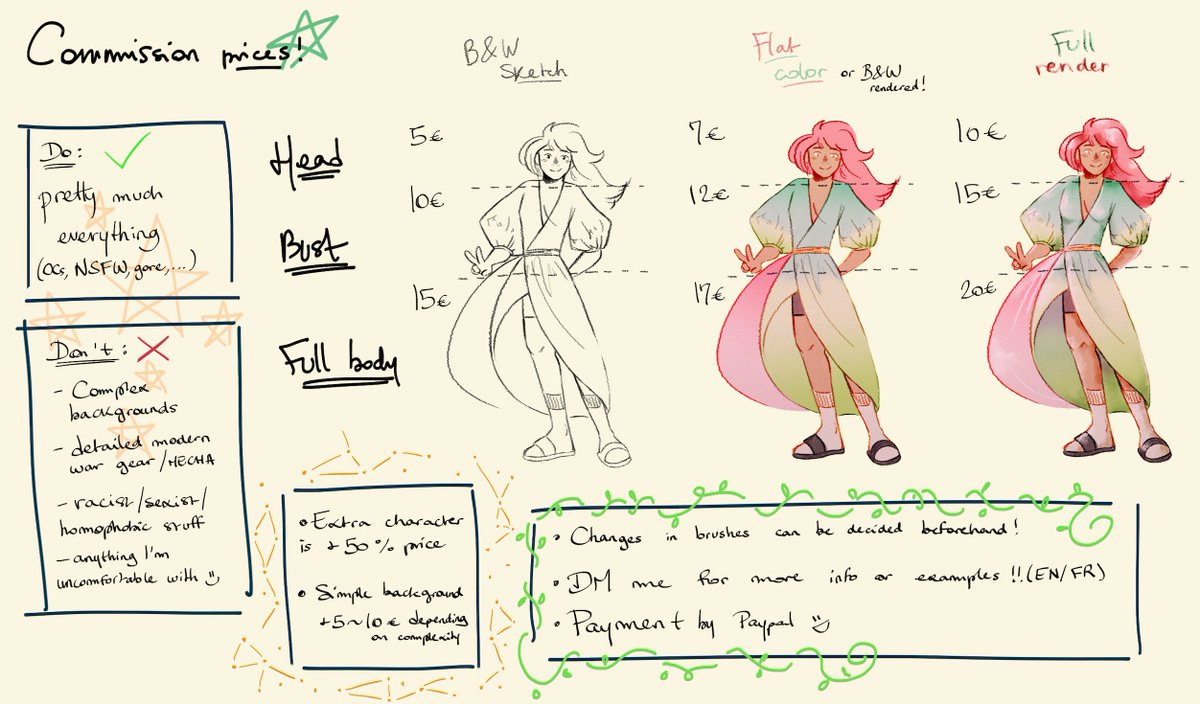 Commission prices!
B&W
sketch
Flat
color or B&W
rendered!
Full
render
Do:
pretty much
everything
(OCs, NSFW, gore,...)
Don't:
- Complex
backgrounds
- detailed modern
war gear/MECHA
- racist/sexist/
homophobic stuff
- anything I'm
uncomfortable with
Head
5€
7€
10€
Bust
10€
12€
15€
Full body
15€
17€
20€
• Extra character
is +50% price
• Simple background
+5~10€ depending
on complexity
• Changes in brushes can be decided beforehand!
• DM me for more info or examples!!(EN/FR)
• Payment by Paypal